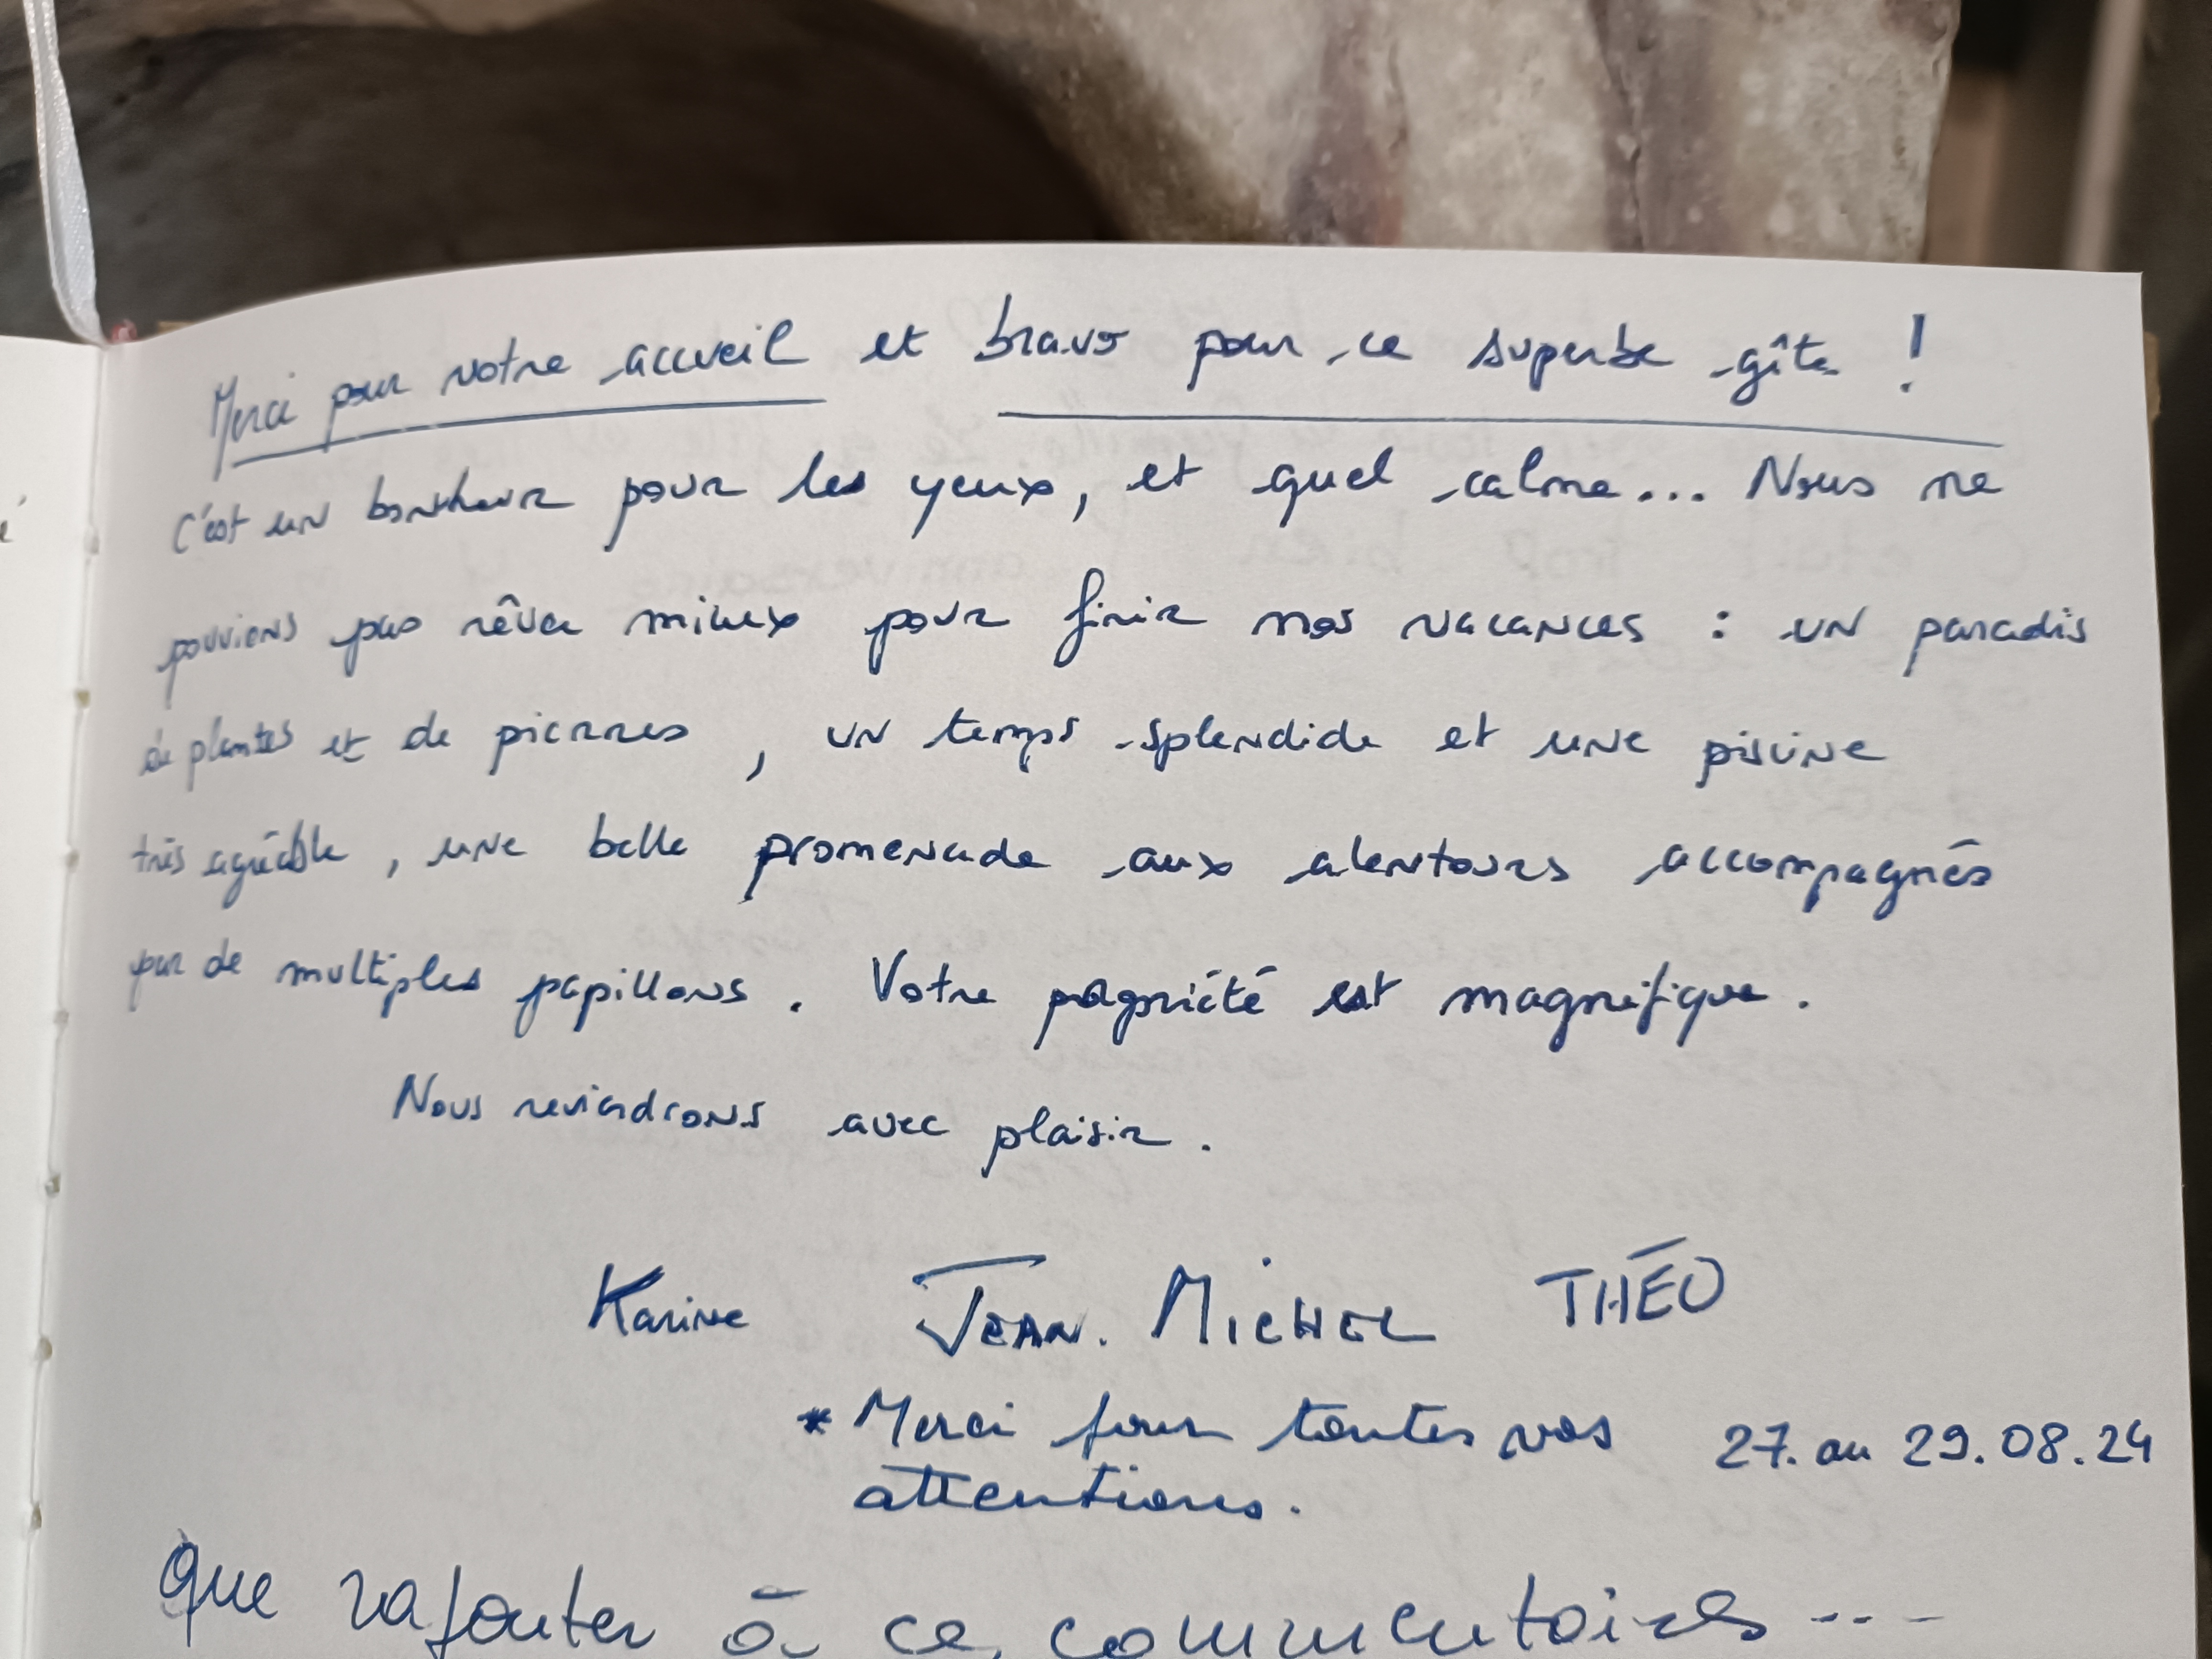 Merci pour votre accueil et bravo pour ce superbe gîte !
C'est un bonheur pour les yeux, et quel calme... Nous ne
pouvions pas rêver mieux pour finir nos vacances : un paradis
de plantes et de pierres, un temps splendide et une piscine
très agréable, une belle promenade aux alentours accompagnés
par de multiples papillons. Votre propriété est magnifique.
Nous reviendrons avec plaisir.
Karine JEAN. MICHEL THÉO
* Merci pour toutes vos 27. au 29.08.24
attentions.
que rajouter à ce commentaires ...